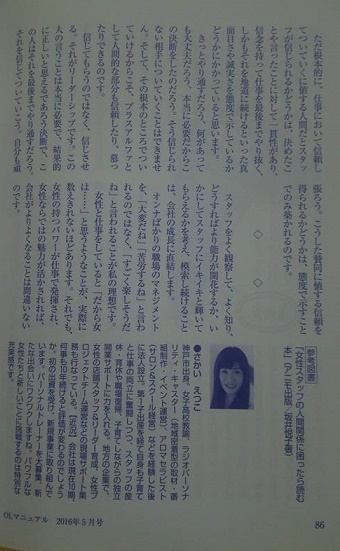 ただ根本的に、仕事において信頼し
てついていくに値する人間だとスタッ
フが信じられるかどうかは、決めたこ
とや言ったことに対して一貫性があり、
信念を持って仕事を最後までやり抜く、
しかもそれを地道に続けるといった真
面目さや誠実さを態度で示しているか
どうかにかかっていると思います。
きっとやり通すだろう、何があって
も大丈夫だろう、本当に必要だからこ
の決断をしたのだろう。そう信じられ
ない相手についていくことはできませ
ん。そして、その根本のところでつい
ていけるからこそ、プラスアルファと
して人間的な部分も信頼したり、慕っ
たりできるのです。
信じてもらうのではなく、信じさせ
る。それがリーダーシップです。この
人の言うことは本当に必要で、結果的
に正しいと思えるであろう決断で、こ
の人はそれを最後までやり通すだろう。
それを信じてついていこう。自分も頑
張ろう。こうした賛同に値する信頼を
得られるかどうかは、態度で示すこと
でのみ築かれるのです。
◇　◇
スタッフをよく観察して、よく知り、
どうすればより能力が開花するか、い
かにしてスタッフにイキイキと輝いて
もらえるかを考え、模索し続けること
は、会社の成長に直結します。
オンナばかりの職場のマネジメント
を、「大変だね」「苦労するね」と言わ
れるのではなく、「すごく楽しそうだ
ね」と言われることが私の理想です。
女性と仕事をしていると「だから女
は……」と思うようなことが、実際に
数えきれないほどあります。それでも、
女性の持つパワーが仕事で発揮され、
女性ならではの魅力が活かされれば、
会社がよりよくなることは間違いない
のです。
【参考図書】
『女性スタッフの人間関係に困ったら読む
本』（アニモ出版、坂井悦子著）
●さかい　えつこ
神戸市出身。女子高校教諭、ラジオパーソナ
リティ・キャスター（地域密着型の取材・番
組制作・イベント運営）、アロマセラピスト
（サロン＆スクール経営）などを経験した後
に法人設立。第1子出産を経て自身も子育て
と仕事の両立に奮闘しつつ、スタッフの産
休・育休や職場復帰、子育てしながらの独立
開業サポートに力を入れる。地方の企業で、
女性の店舗スタッフ＆リーダー育成、女性プ
ロジェクトチーム運営などの現場サポート業
務も行なっている。【近況】会社は現在10期。
何事も10年続けると評価が変わるのでしょう
か。初の出資を受け、新規事業に取り組んで
います。パーソナルトレーナーを大募集。新
たな出会いにワクワクしますね。パワフルな
女性たちと新しいことに挑戦するのは特別な
充実感です。
OLマニュアル　2016年5月号
86